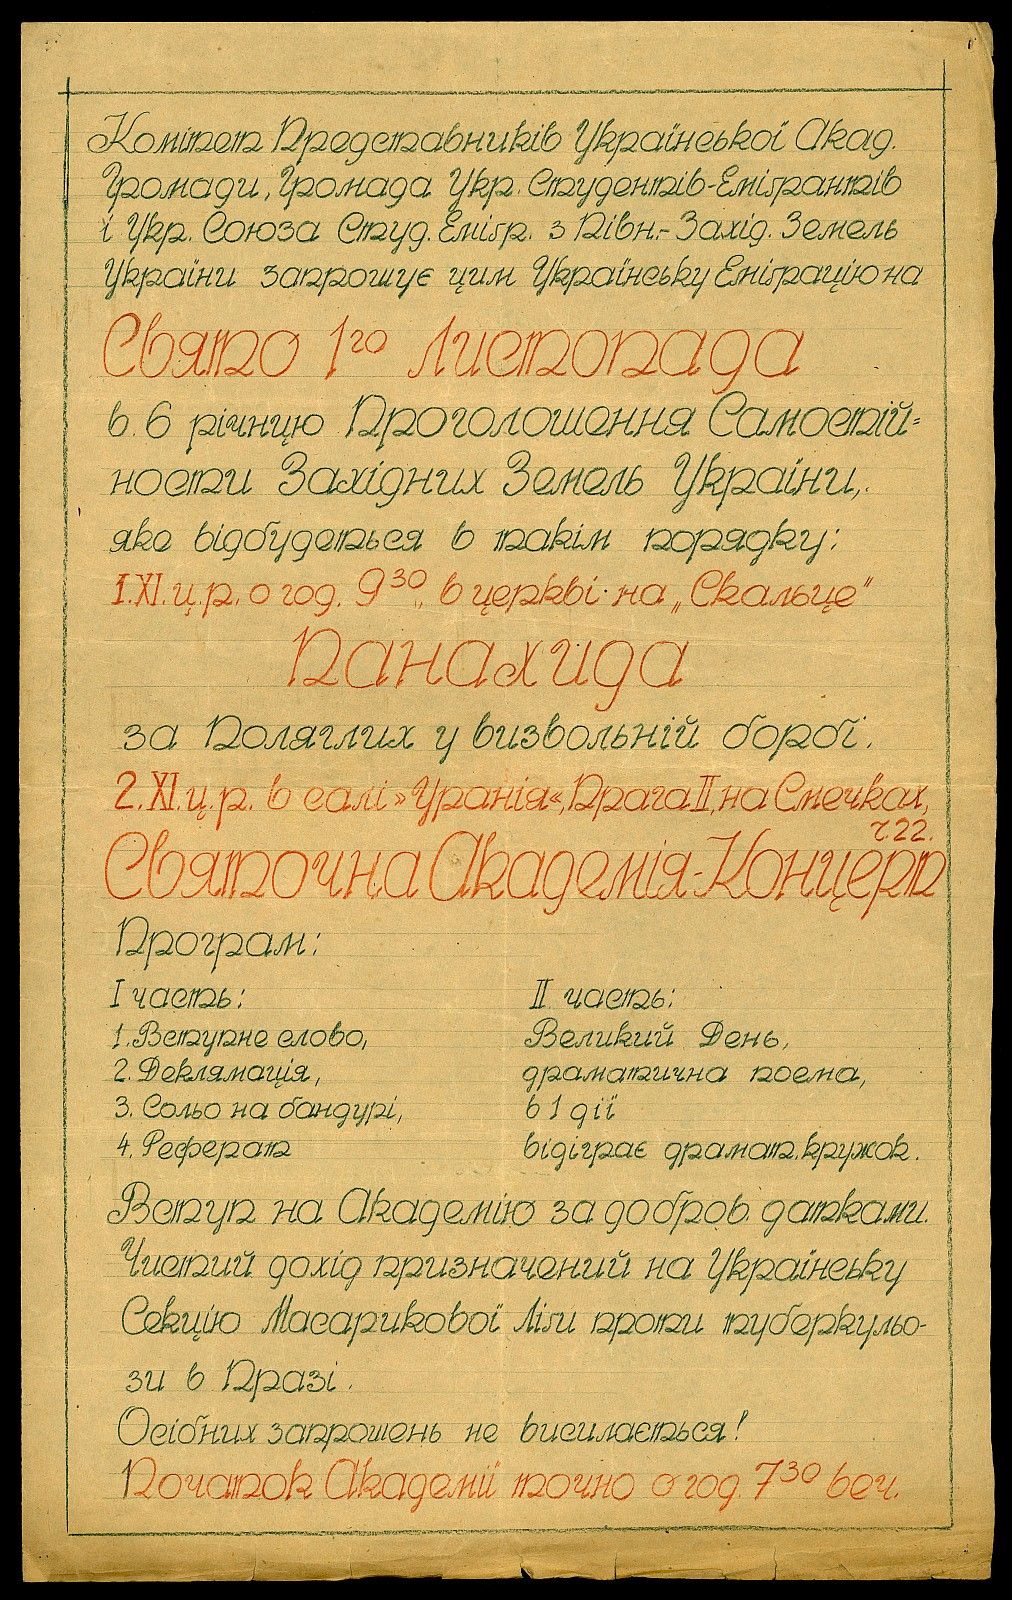 Комітет Представників Української Акад.
Громади, Громада Укр. Студентів-Еміґрантів
і Укр. Союза Студ. Еміґр. з Півн.- Захід. Земель
України запрошує цим Українську Еміґрацію на
Свято 1го Листопада
в 6 річницю Проголошення Самостій=
ности Західних Земель України,
яке відбудеться в такім порядку:
1.XI.ц.р. о год. 9 30, в церкві на „Скальце"
Панахида
за Поляглих у визвольній борбі.
2.XI.ц.р. в салі »Уранія«, Прага II, на Смечках,
ч.22.
Святочна Академія-Концерт
Програм:
I часть:
1. Вступне слово,
2. Деклямація,
3. Сольо на бандурі,
4. Реферат
II часть:
Великий День,
драматична поема,
в 1 дії
відіграє драмат. кружок.
Вступ на Академію за добров. датками.
Чистий дохід призначений на Українську
Секцію Масарикової Ліґи проти туберкульо-
зи в Празі.
Осібних запрошень не висилається!
Початок Академії точно о год. 7 30 веч.